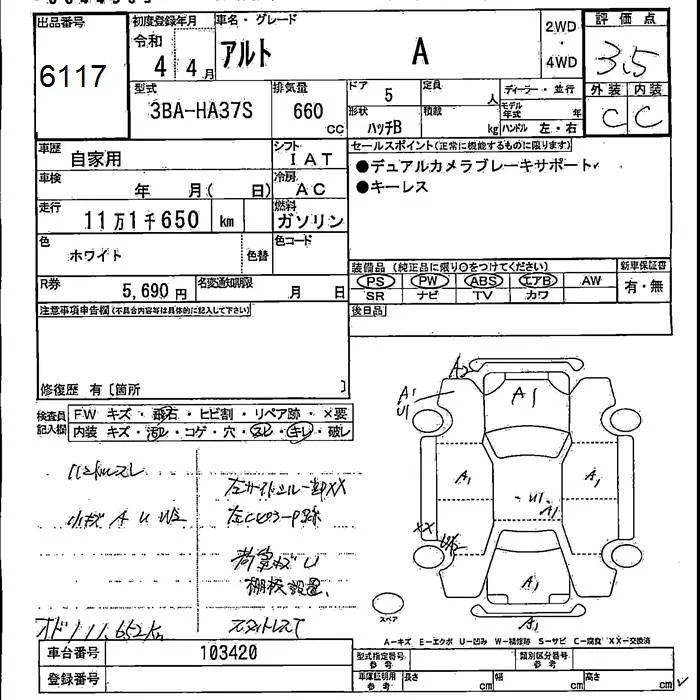 出品番号
6117
初度登録年月
令和
4年4月
車名・グレード
アルト A
2WD
・
4WD
評価点
3.5
外装 内装
C C
型式
3BA-HA37S
排気量
660
CC
ドア
5
定員
人
形状
ハッチB
積載
kg
ディーラー・並行
モデル年式 年
ハンドル 左・右
車歴
自家用
シフト
IAT
車検
年 月( 日)
冷房
AC
走行
11万1千650 km
燃料
ガソリン
色
ホワイト
色替
色コード
R券
5,690円
名変通知期限
月 日
セールスポイント(正常に機能するものに限ります)
●デュアルカメラブレーキサポート
●キーレス
装備品(純正品に限り○をつけてください)
PS PW ABS エアB AW
SR ナビ TV カワ
新車保証書
有・無
後日品
注意事項申告欄(不具合内容等は具体的に記入して下さい)
修復歴 有〔箇所 〕
検査員
記入欄
FW キズ・飛石・ヒビ割・リペア跡・×要
内装 キズ・汚レ・コゲ・穴・スレ・キレ・破レ
ハンドルスレ
小キズ A U W2
左サイドシル一部XX
左Cピラー P跡
荷室キズ U
棚板設置
スタットレスT
オド111,652km
A2
A1
U1
A1
A1
A1
U1
A1
XX
A1
A1
スペア
A-キズ E-エクボ U-凹み W-補修跡 S-サビ C-腐食 XX-交換済
車台番号
103420
登録番号
型式指定番号
参考
類別区分番号
参考
車庫証明用
参考
長さ cm
幅 cm
高さ cm